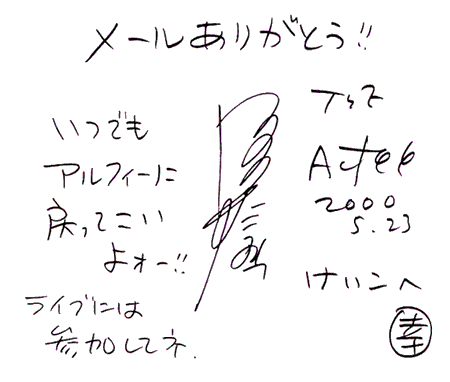 メールありがとう!!
いつでも
アルフィーに
戻ってこい
よォー!!
ライブには
参加してネ.
The
Alfee
2000
5.23
けいこへ
幸